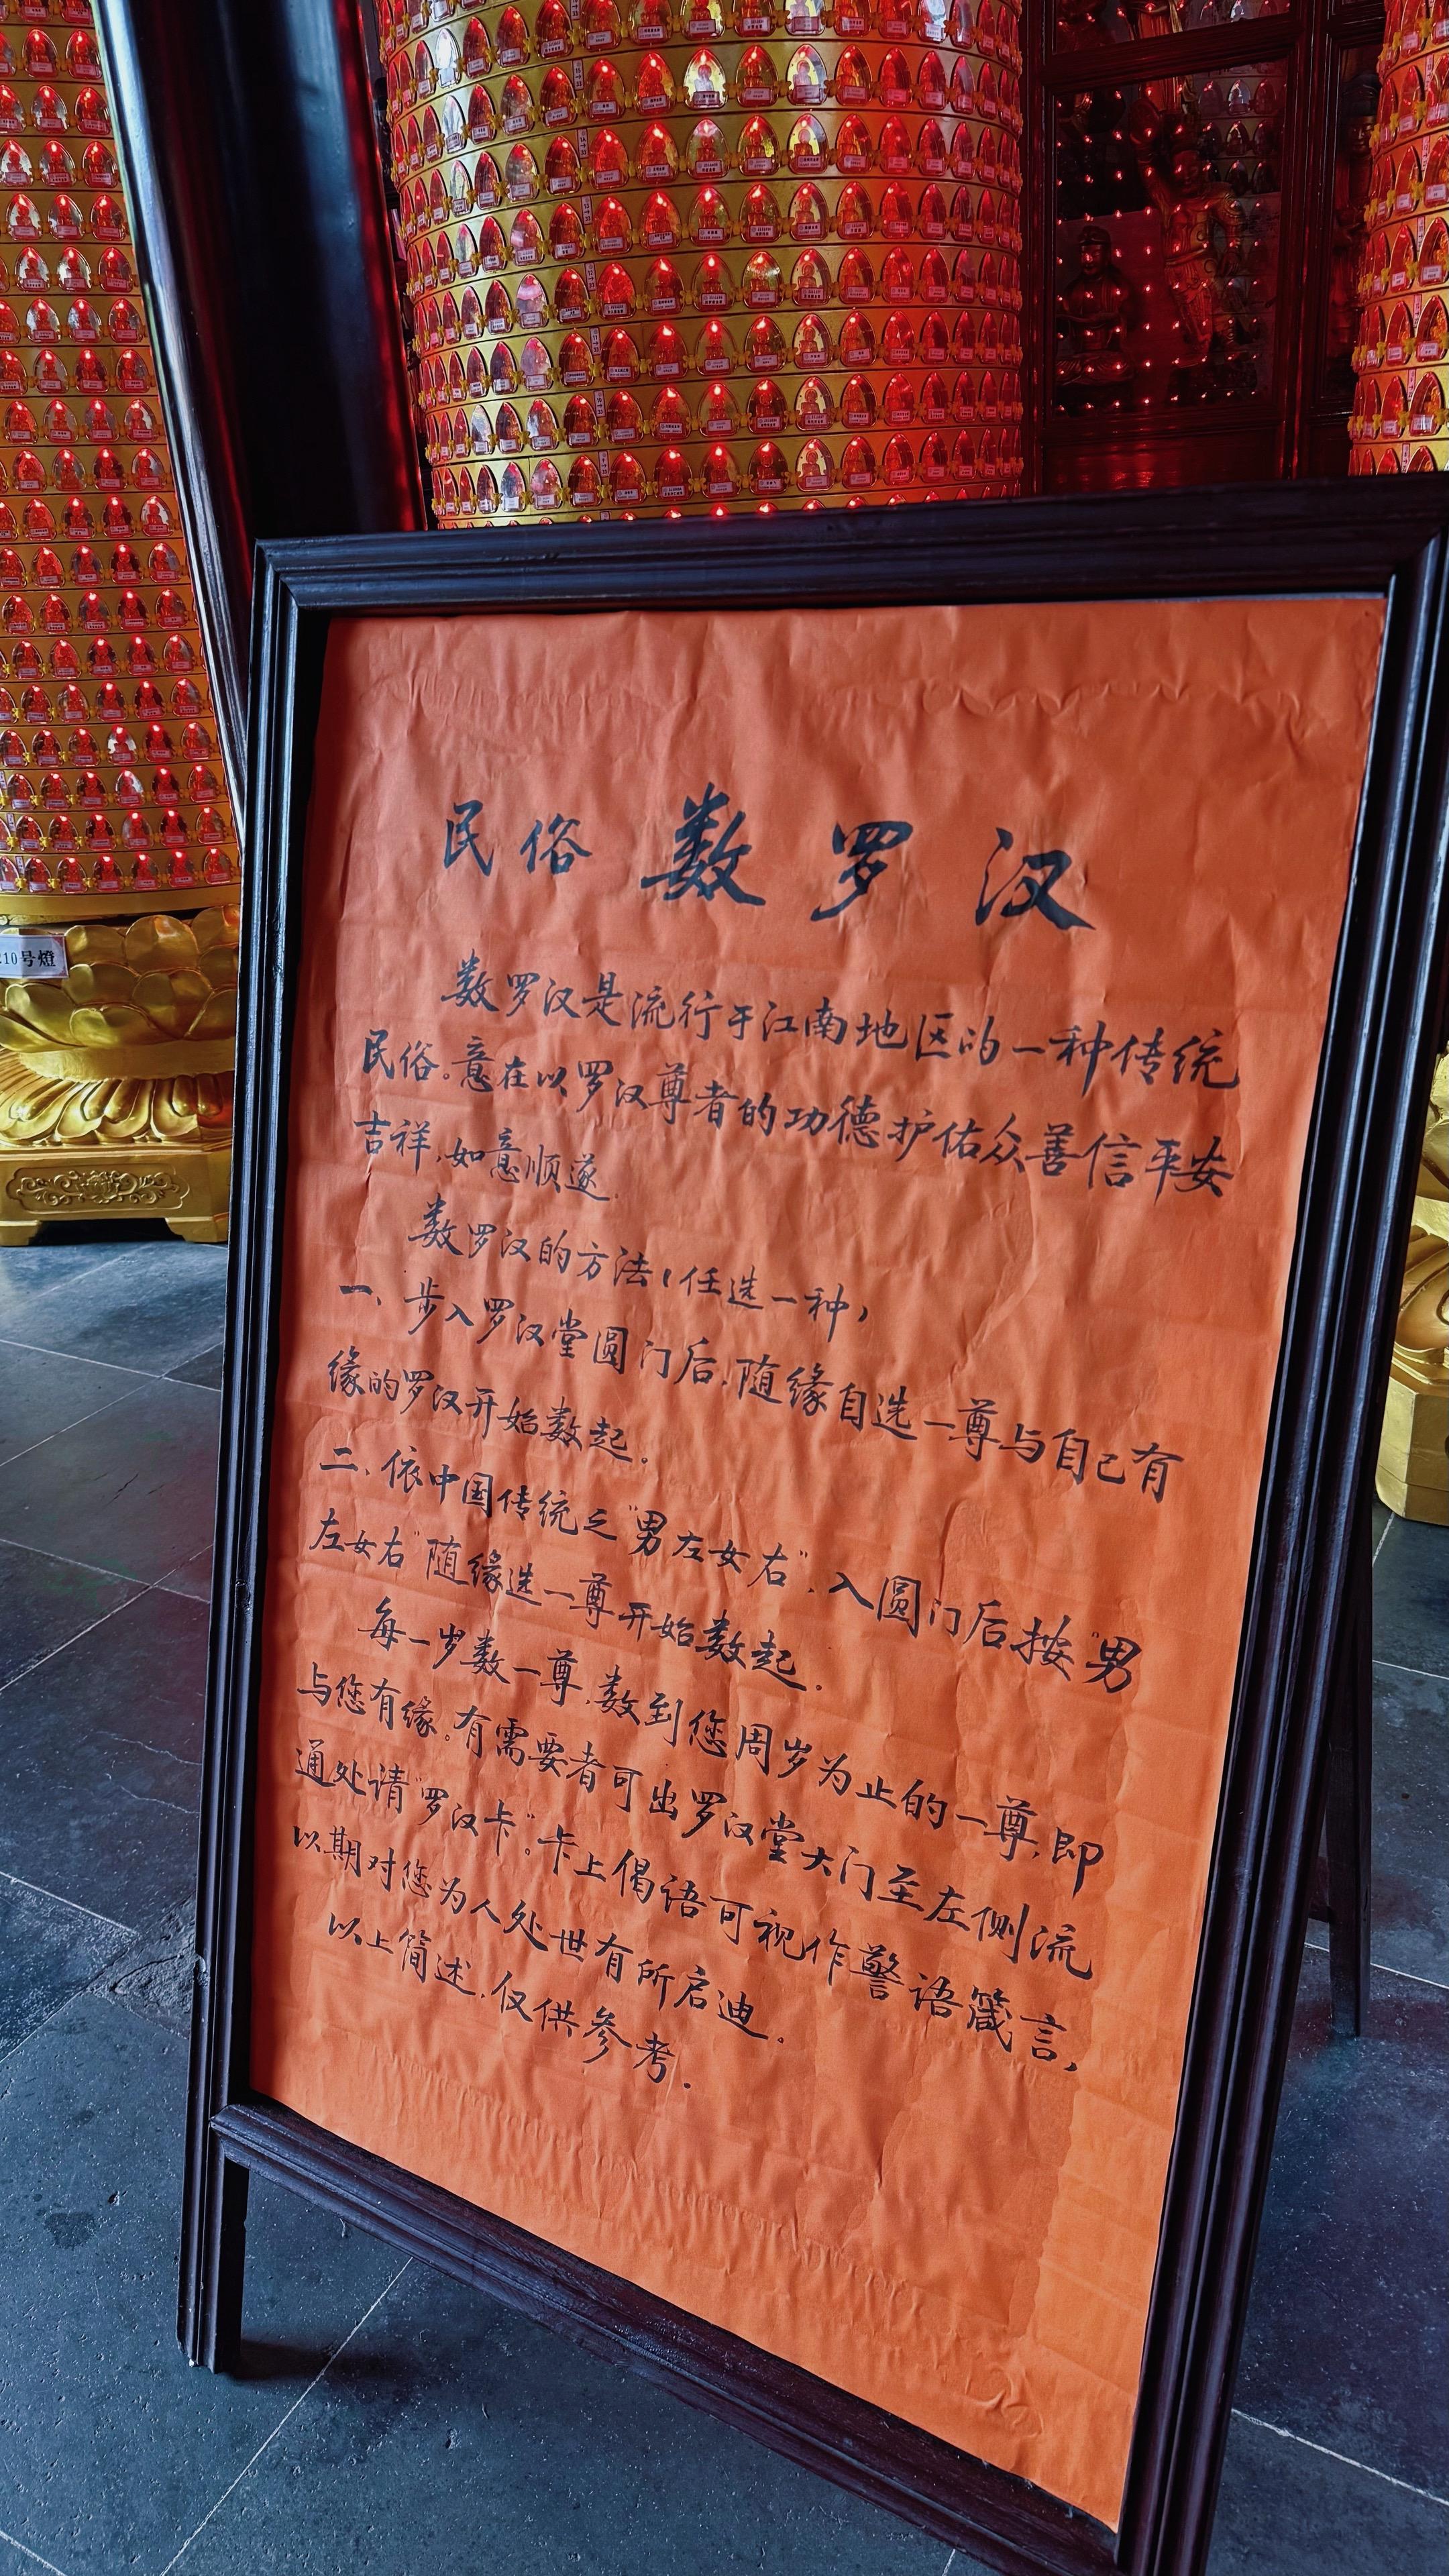 民俗 数罗汉
数罗汉是流行于江南地区的一种传统
民俗。意在以罗汉尊者的功德护佑众善信平安
吉祥,如意顺遂.
数罗汉的方法(任选一种)
一、步入罗汉堂圆门后,随缘自选一尊与自己有
缘的罗汉开始数起。
二、依中国传统之"男左女右",入圆门后按"男
左女右"随缘选一尊开始数起.
每一岁数一尊,数到您周岁为止的一尊,即
与您有缘。有需要者可出罗汉堂大门至左侧流
通处请"罗汉卡"。卡上偈语可视作警语箴言,
以期对您为人处世有所启迪。
以上简述,仅供参考.
10号燈